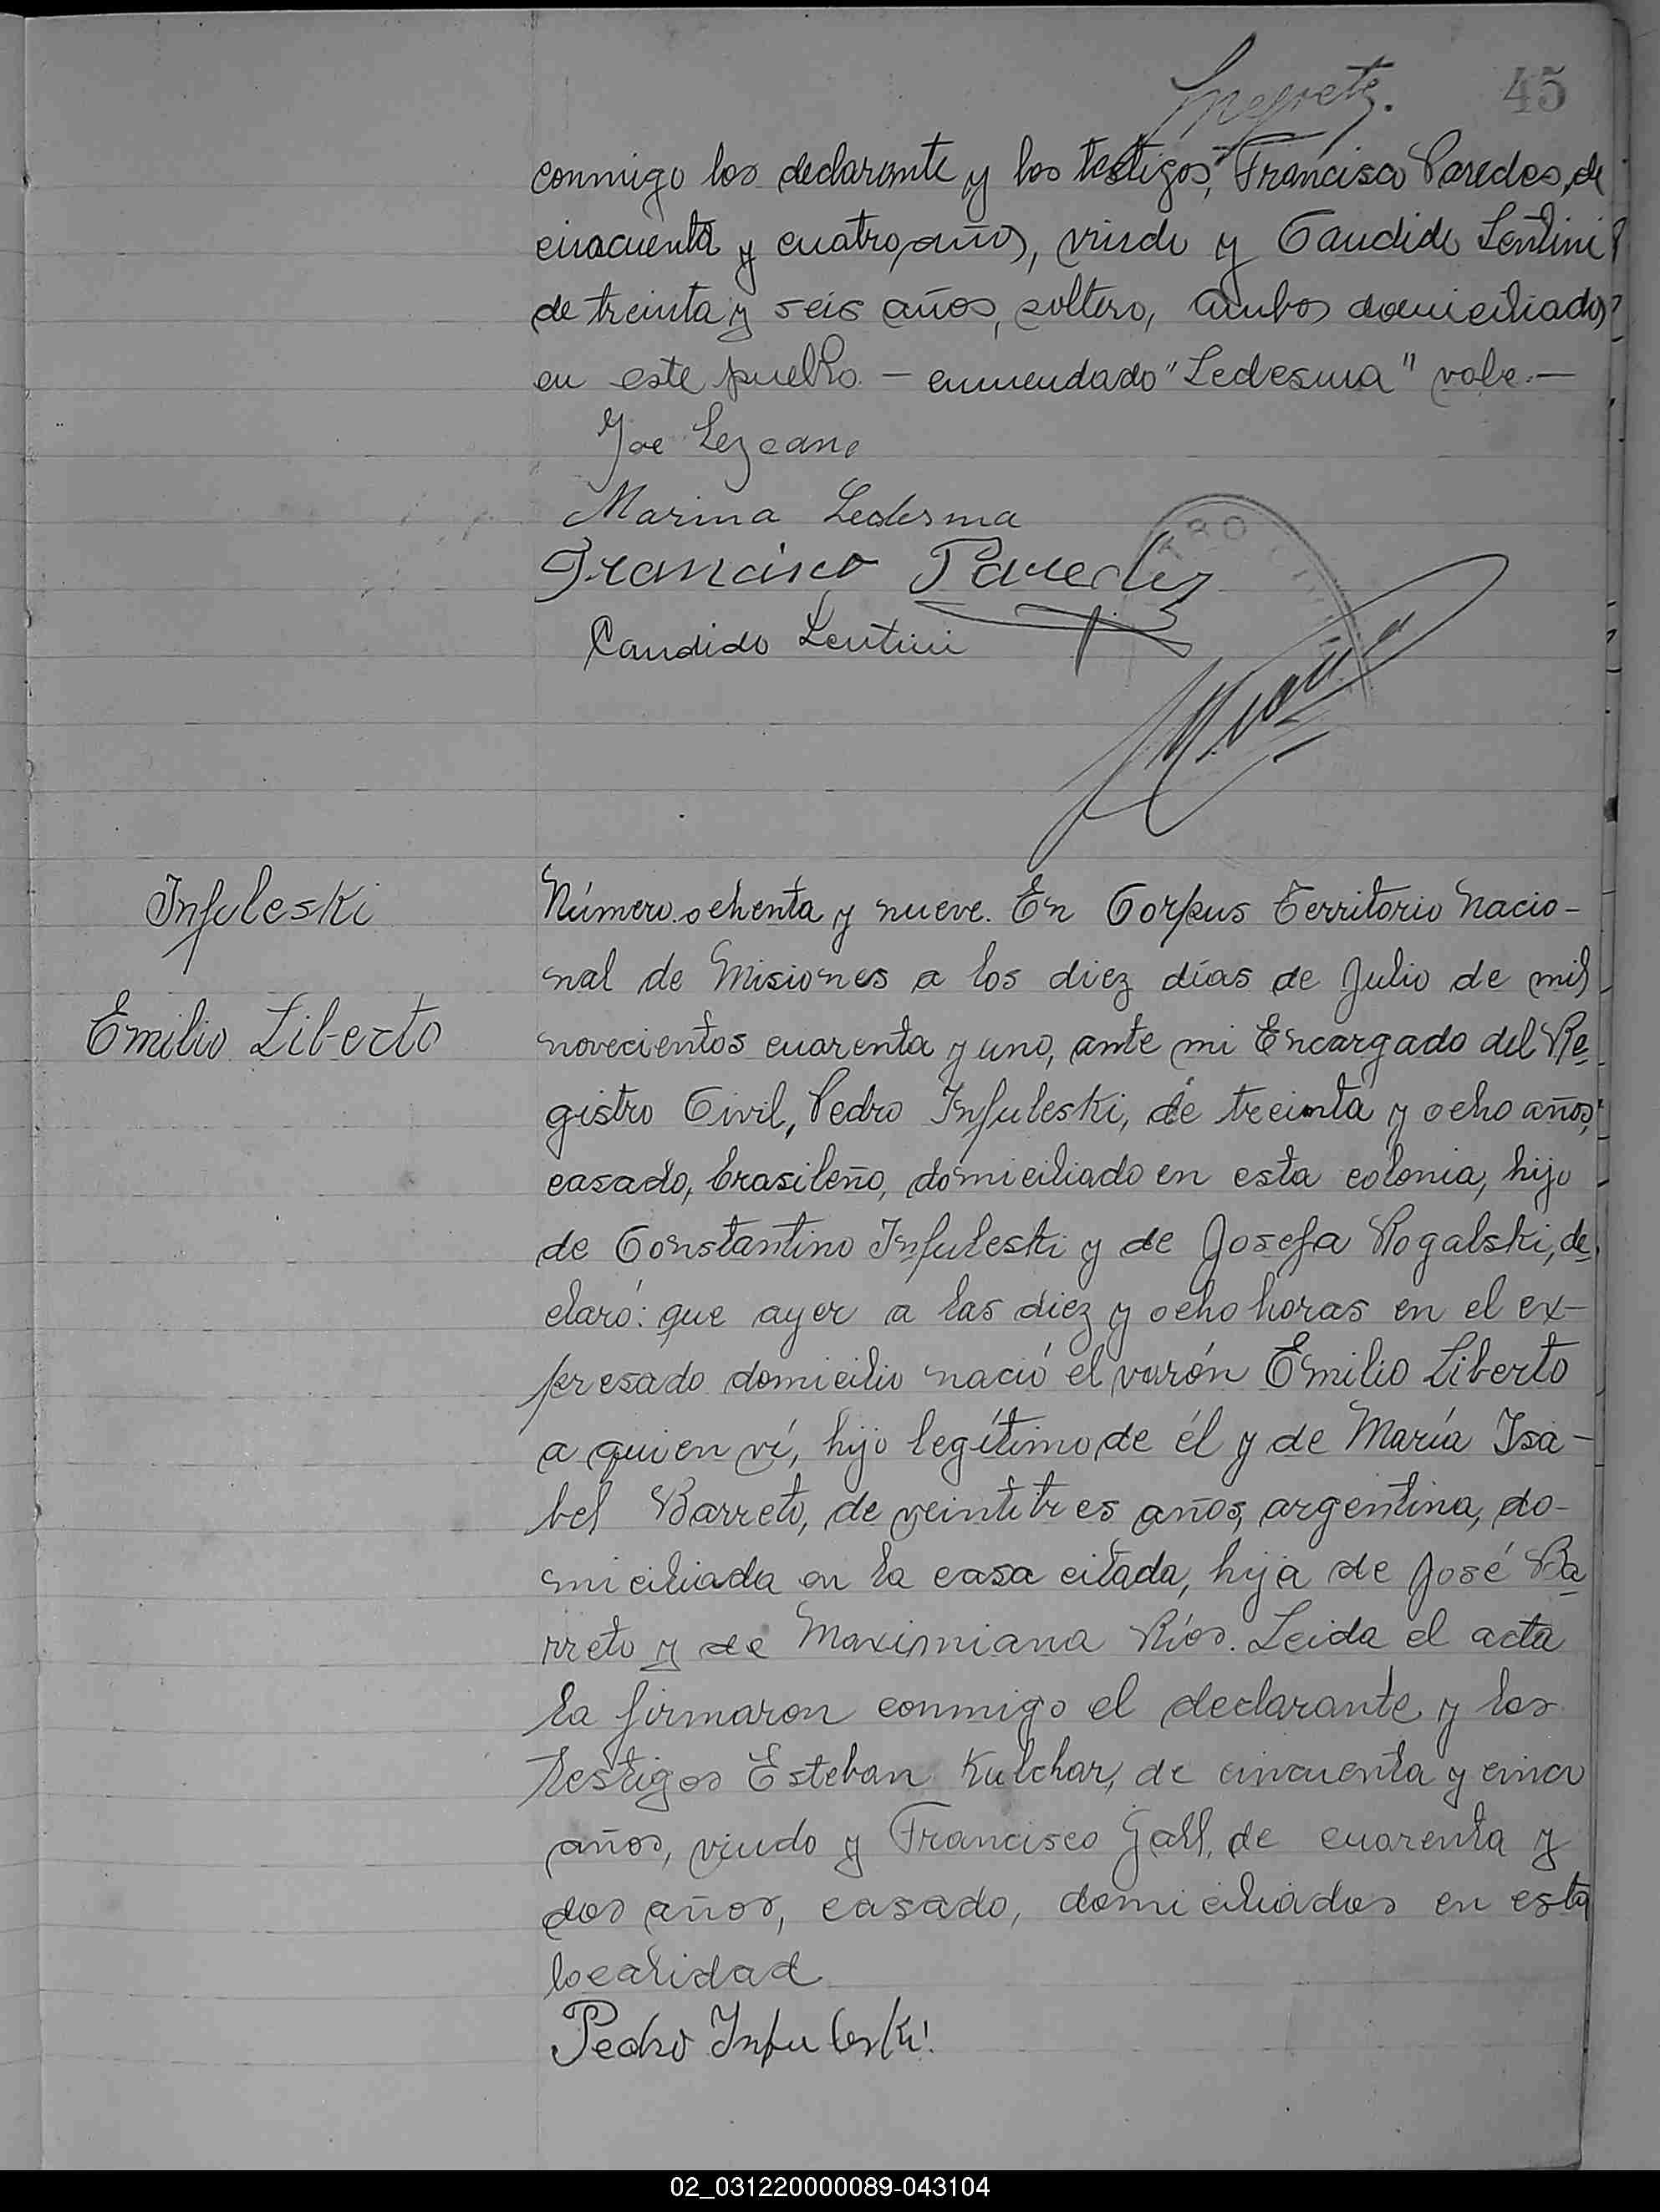 45
conmigo los declarante y los testigos, Francisco Paredes, de
cincuenta y cuatro años, viudo y Candido Lentini
de treinta y seis años, soltero, ambos domiciliados
en este pueblo. — enmendado "Ledesma" vale. —
Joe Lezcano
Marina Ledesma
Francisco Paredes
Candido Lentini
Infuleski
Emilio Liberto
Número ochenta y nueve. En Corpus Territorio Nacio-
nal de Misiones a los diez días de Julio de mil
novecientos cuarenta y uno, ante mi Encargado del Re-
gistro Civil, Pedro Infuleski, de treinta y ocho años,
casado, brasileño, domiciliado en esta colonia, hijo
de Constantino Infuleski y de Josefa Rogalski, de-
claró: que ayer a las diez y ocho horas en el ex-
presado domicilio nació el varón Emilio Liberto
a quien ví, hijo legítimo de él y de María Isa-
bel Barreto, de veintitres años, argentina, do-
miciliada en la casa citada, hija de José Ba-
rreto y de Maximiana Ríos. Leida el acta
la firmaron conmigo el declarante y los
testigos Esteban Kulchar, de cincuenta y cinco
años, viudo y Francisco Gall, de cuarenta y
dos años, casado, domiciliados en esta
localidad
Pedro Infuleski
02_031220000089-043104